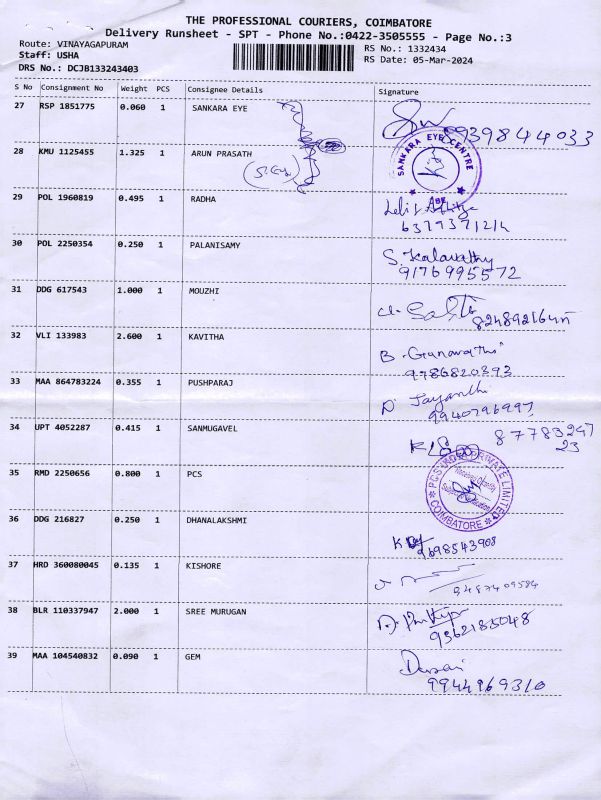 THE PROFESSIONAL COURIERS, COIMBATORE
Delivery Runsheet - SPT - Phone No.:0422-3505555 - Page No.:3
Route: VINAYAGAPURAM
RS No.: 1332434
Staff: USHA
RS Date: 05-Mar-2024
DRS No.: DCJB133243403
S No Consignment No Weight PCS Consignee Details Signature
27 RSP 1851775 0.060 1 SANKARA EYE
939844033
28 KMU 1125455 1.325 1 ARUN PRASATH
SANKARA EYE CENTRE
29 POL 1960819 0.495 1 RADHA
30 POL 2250354 0.250 1 PALANISAMY
S. Kalavathy
9176995572
31 DDG 617543 1.000 1 MOUZHI
32 VLI 133983 2.600 1 KAVITHA
B. Ganavathi
9786820393
33 MAA 864783224 0.355 1 PUSHPARAJ
D. Jayanthi
9940796997
34 UPT 4052287 0.415 1 SANMUGAVEL
87783297
23
35 RMD 2250656 0.800 1 PCS
PRIVATE LIMITED
COIMBATORE
36 DDG 216827 0.250 1 DHANALAKSHMI
9698543908
37 HRD 360080045 0.135 1 KISHORE
9487409584
38 BLR 110337947 2.000 1 SREE MURUGAN
9362185048
39 MAA 104540832 0.090 1 GEM
9944969310